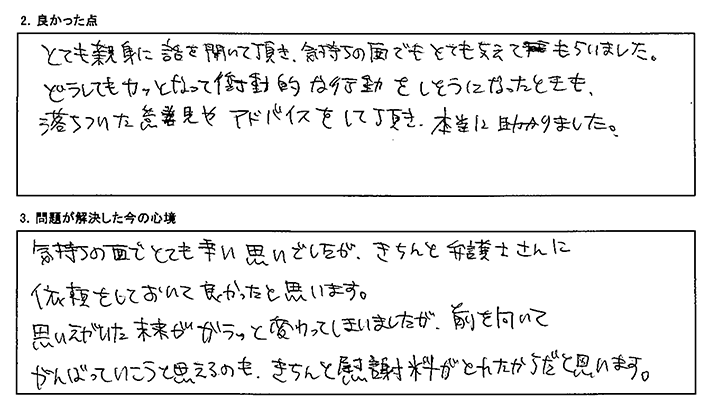 2. 良かった点
とても親身に話を聞いて頂き、気持ちの面でもとても支えてもらいました。
どうしてもカッとなって衝動的な行動をしそうになったときも、
落ちついた意見やアドバイスをして頂き、本当に助かりました。
3. 問題が解決した今の心境
気持ちの面でとても辛い思いでしたが、きちんと弁護士さんに
依頼をしておいて良かったと思います。
思いえがいた未来がガラッと変わってしまいましたが、前を向いて
がんばっていこうと思えるのも、きちんと慰謝料がとれたからだと思います。